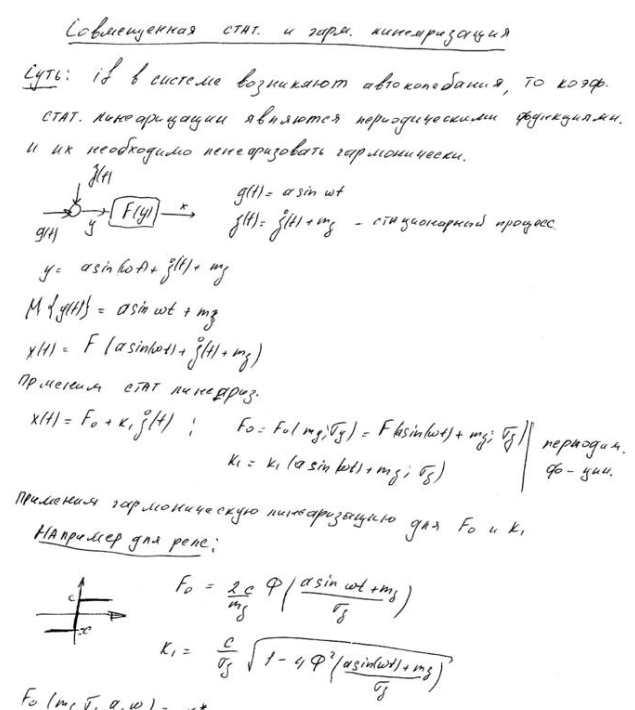 Совмещенная стат. и гарм. линеаризация
Суть: if в системе возникают автоколебания, то коэф.
стат. линеаризации являются периодическими функциями.
и их необходимо линеаризовать гармонически.
ξ(t)
g(t) y F(y) x
g(t) = a sin ωt
ξ(t) = ξ̊(t) + mξ - стационарный процесс
y = a sin(ωt) + ξ̊(t) + mξ
M{y(t)} = a sin ωt + mξ
x(t) = F(a sin(ωt) + ξ̊(t) + mξ)
Применим стат линеариз.
x(t) = F₀ + K₁ ξ̊(t) ; F₀ = F₀(mξ; σξ) = F(a sin(ωt) + mξ; σξ)
K₁ = K₁(a sin(ωt) + mξ; σξ)
периодич.
фо-ции.
Применим гармоническую линеаризацию для F₀ и K₁
Например для реле:
c
F₀ = 2c/mξ Φ((a sin ωt + mξ)/σξ)
K₁ = c/σξ √(1 - 4Φ²((a sin(ωt) + mξ)/σξ))